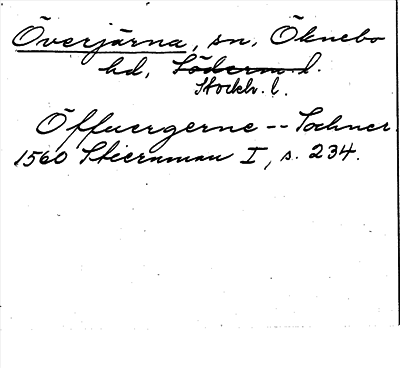 Överjärna, sn, Öknebo
hd, Söderm. l.
Stockh. l.
Öffuergerne -- Sochner.
1560 Stiernman I, s. 234.